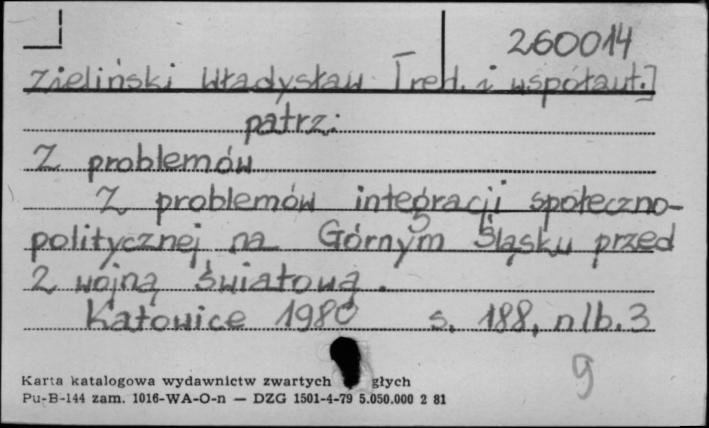 260014
Zieliński Władysław [red. i współaut.]
patrz:
Z problemów
Z problemów integracji społeczno-
politycznej na Górnym Śląsku przed
2 wojną światową.
Katowice 1980 s. 188, nlb. 3
9
Karta katalogowa wydawnictw zwartych głych
Pu-B-144 zam. 1016-WA-O-n — DZG 1501-4-79 5.050.000 2 81